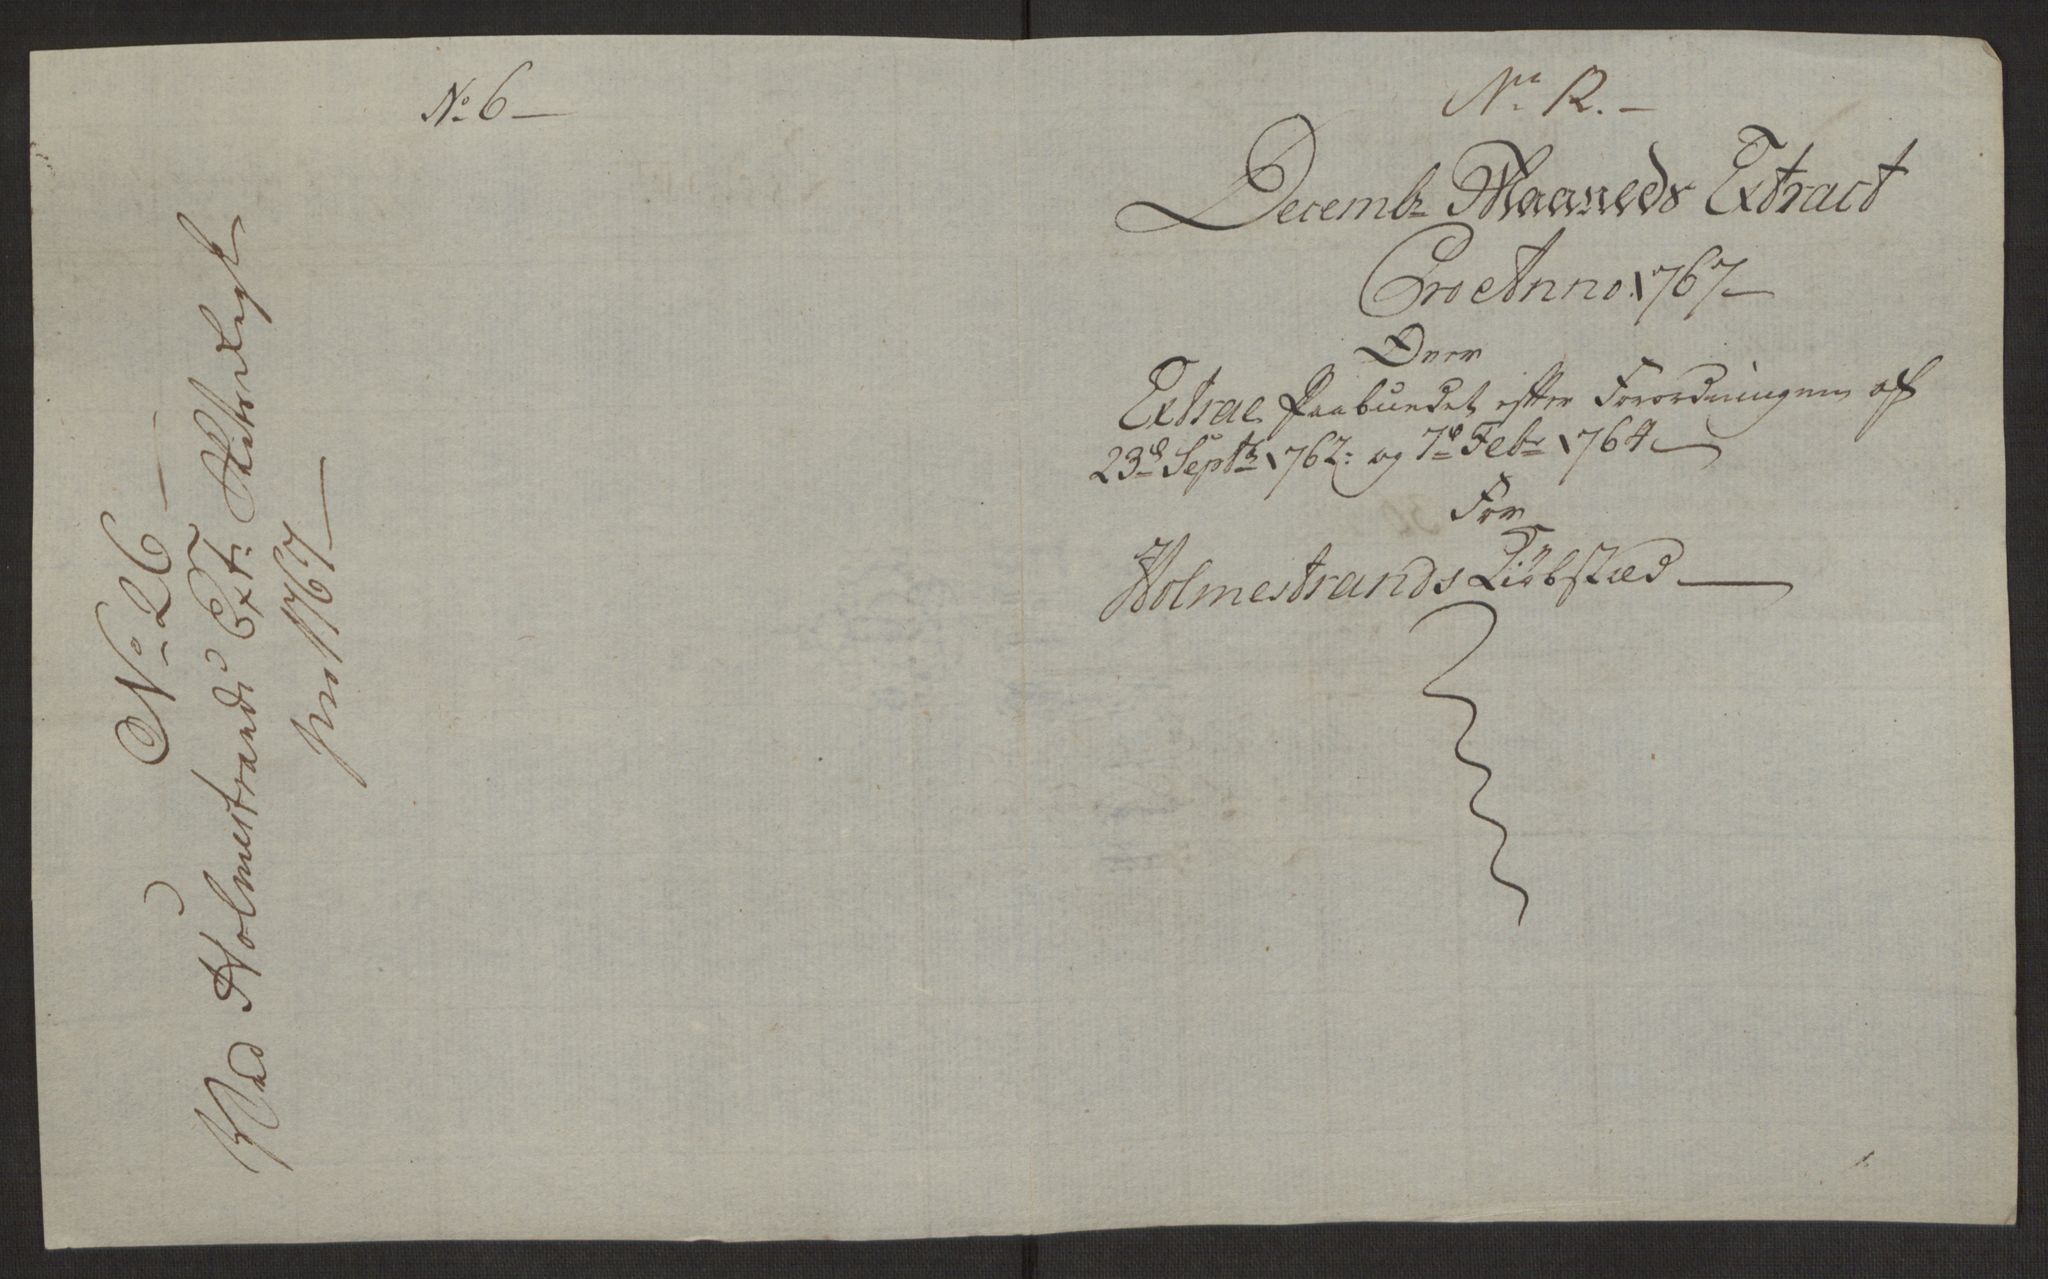 No 6 —
No 26 —
Ved Holmestrands Ext:
pro 1767 —
No 12. —
Decembr Maaneds Extract
Pro Anno 1767 —
Over
Extrae Paabudet efter Forordningen af
23de Septbr 1762: og 7de Febr 1764 —
For
Holmestrands Kiøbstæd —